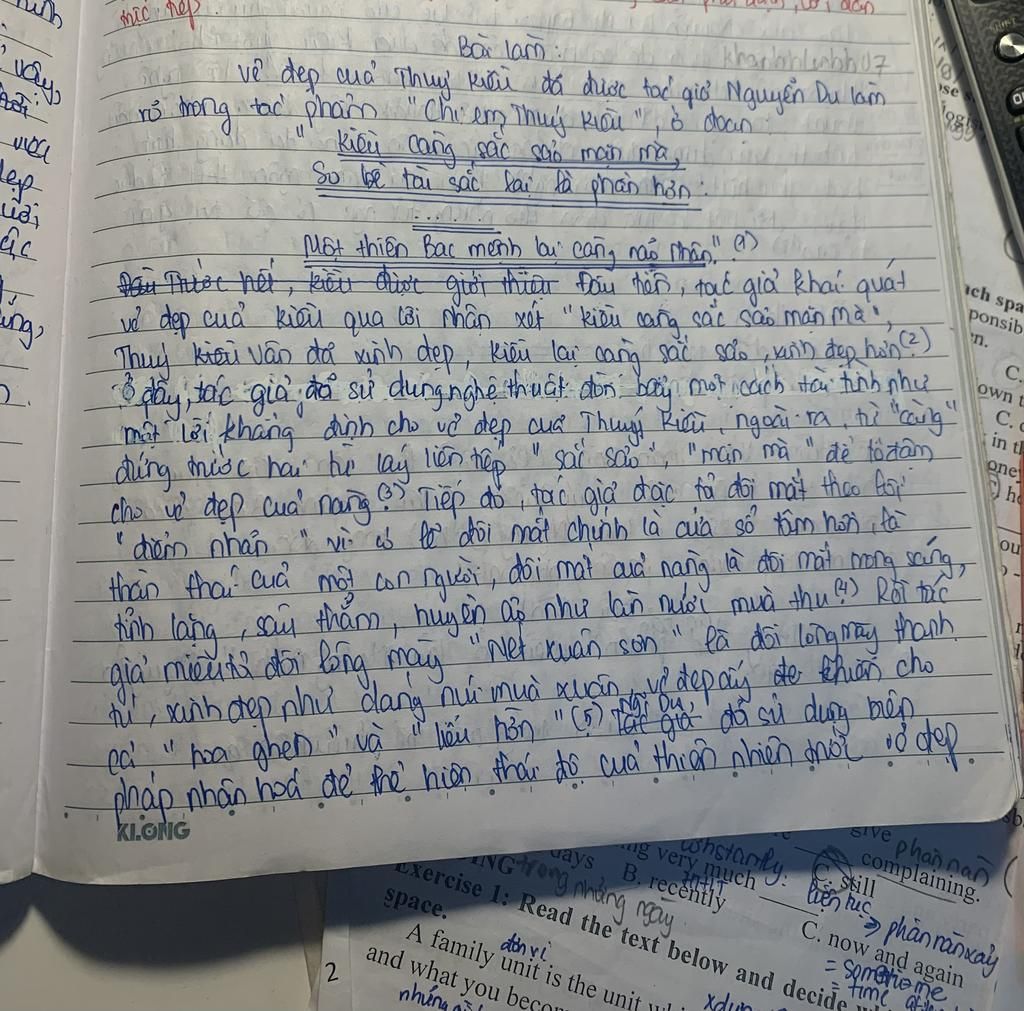 thức tiếp.
Bài làm:
khanhlinhh07
vẻ đẹp của Thuý Kiều đã được tác giả Nguyễn Du làm
rõ trong tác phẩm "Chị em Thuý Kiều", ở đoạn:
"Kiều càng sắc sảo mặn mà,
So bề tài sắc lại là phần hơn:
..........
Một thiên Bạc mệnh lại càng não nhân." (1)
Đầu Trước hết, Kiều được giới thiệu Đầu tiên, tác giả khái quát
vẻ đẹp của Kiều qua lời nhận xét "Kiều càng sắc sảo mặn mà",
Thuý Kiều Vân đã xinh đẹp, Kiều lại càng sắc sảo, xinh đẹp hơn (2)
Ở đây, tác giả đã sử dụng nghệ thuật đòn bẩy một cách tài tình như
một lời khẳng định cho vẻ đẹp của Thuý Kiều, ngoài ra, từ "càng"
đứng trước hai từ láy liên tiếp "sắc sảo", "mặn mà" để tô đậm
cho vẻ đẹp của nàng (3) Tiếp đó, tác giả đặc tả đôi mắt theo lối
"điểm nhãn" vì có lẽ đôi mắt chính là cửa sổ tâm hồn, là
thần thái của một con người, đôi mắt của nàng là đôi mắt trong sáng,
tĩnh lặng, sâu thẳm, huyền ảo như làn nước mùa thu (4) Rồi tác
giả miêu tả đôi lông mày "Nét xuân sơn" là đôi lông mày thanh
tú, xinh đẹp như dáng núi mùa xuân, vẻ đẹp ấy để khiến cho
cả "hoa ghen" và "liễu hờn" (5) Tác giả Ng Du, đã sử dụng biện
pháp nhân hoá để thể hiện thái độ của thiên nhiên trước vẻ đẹp
KLONG
give phàn nàn
days
ng very much constantly:
complaining.
trong những ngày
B. recently
C. still
liên tục
→ phàn nàn xảy
Exercise 1: Read the text below and decide
space.
C. now and again
= sometime
= time
đơn vị
A family unit is the unit
2
and what you becom
những